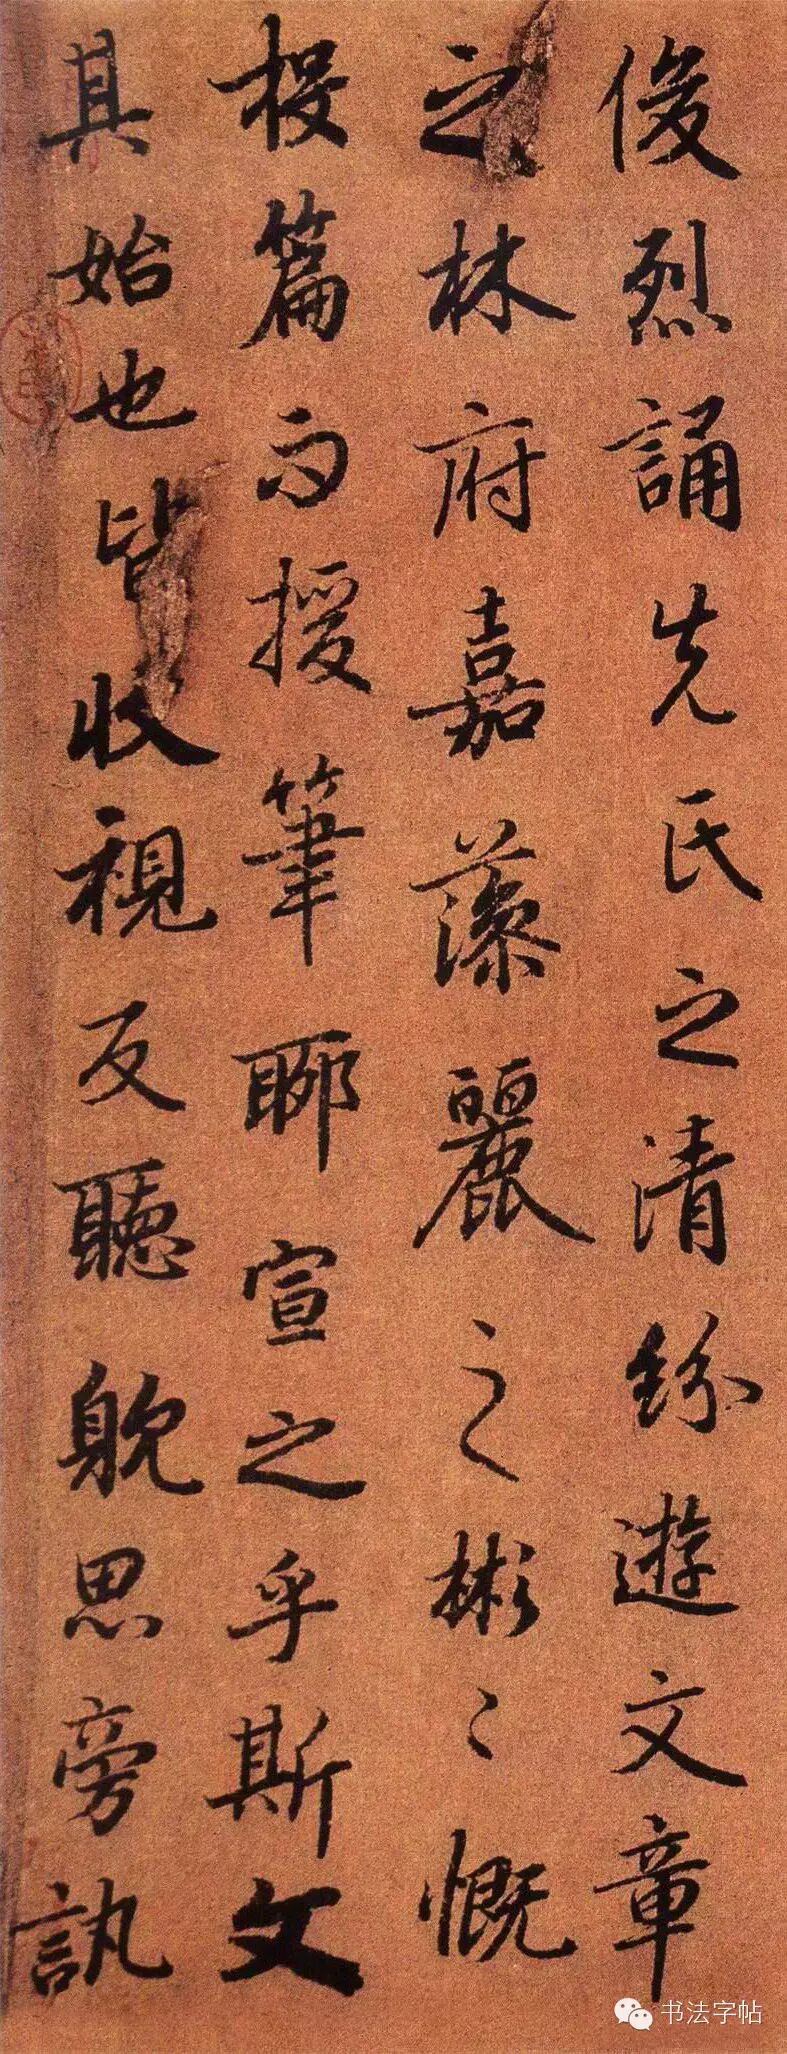 俊烈誦先民之清芬遊文章
之林府嘉藻麗之彬〻慨
投篇而授筆聊宣之乎斯文
其始也皆收視反聽躭思旁訊
书法字帖